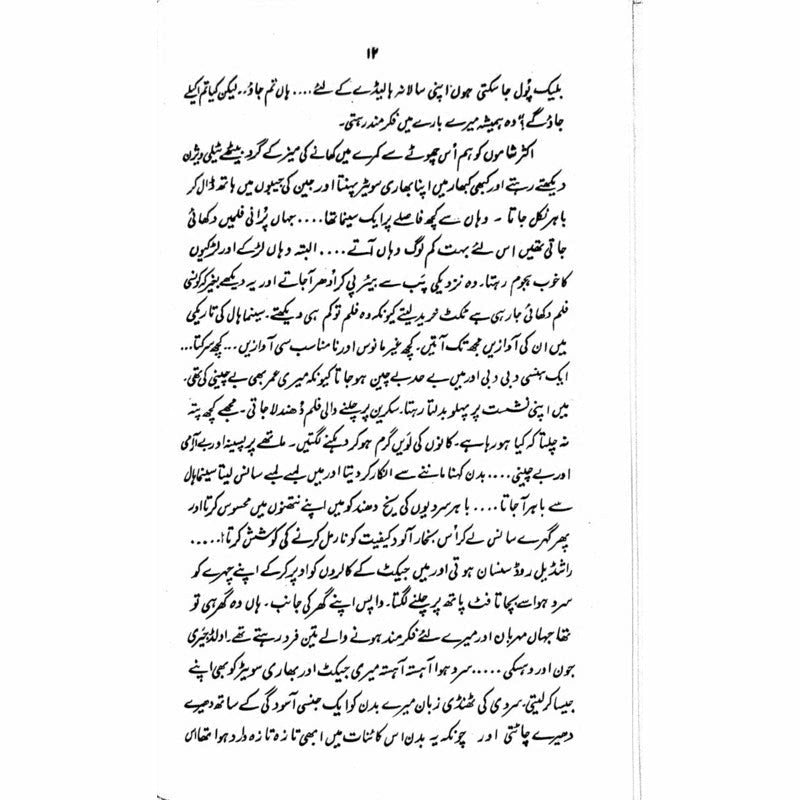 ۱۲
بلیک پُول جا سکتی ہوں اپنی سالانہ ہالیڈے کے لئے .... ہاں تم جاؤ .. لیکن کیا تم اکیلے
جاؤ گے؟ وہ ہمیشہ میرے بارے میں فکر مند رہتی۔
اکثر شاموں کو ہم اُس چھوٹے سے کمرے میں کھانے کی میز کے گرد بیٹھے ٹیلی ویژن
دیکھتے رہتے اور کبھی کبھار میں اپنا بھاری سویٹر پہنتا اور جین کی جیبوں میں ہاتھ ڈال کر
باہر نکل جاتا ۔ وہاں سے کچھ فاصلے پر ایک سینما تھا .... جہاں پُرانی فلمیں دکھائی
جاتی تھیں اس لئے بہت کم لوگ وہاں آتے .... البتہ وہاں لڑکے اور لڑکیوں
کا خوب ہجوم رہتا۔ وہ نزدیکی پَب سے بیئر پی کر اُدھر آ جاتے اور یہ دیکھے بغیر کہ کونسی
فلم دکھائی جا رہی ہے ٹکٹ خرید لیتے کیونکہ وہ فلم تو کم ہی دیکھتے۔ سینما ہال کی تاریکی
میں ان کی آوازیں مجھ تک آتیں۔ کچھ غیر مانوس اور نامناسب سی آوازیں ... کچھ سرکتا ...
ایک ہنسی دبی دبی اور میں بے حد بے چین ہو جاتا کیونکہ میری عمر بھی بے چینی کی تھی۔
میں اپنی نشست پر پہلو بدلتا رہتا۔ سکرین پر چلنے والی فلم دُھندلا جاتی۔ مجھے کچھ پتہ
نہ چلتا کہ کیا ہو رہا ہے۔ کانوں کی لَویں گرم ہو کر دہکنے لگتیں۔ ماتھے پر پسینہ اور بے آرامی
اور بے چینی .... بدن کہنا ماننے سے انکار کر دیتا اور میں لمبے لمبے سانس لیتا سینما ہال
سے باہر آ جاتا .... باہر سردیوں کی یخ دھند کو میں اپنے نتھنوں میں محسوس کرتا اور
پھر گہرے سانس لے کر اُس بخار آلود کیفیت کو نارمل کرنے کی کوشش کرتا! .....
راشڈیل روڈ سنسان ہوتی اور میں جیکٹ کے کالروں کو اوپر کر کے اپنے چہرے کو
سرد ہوا سے بچاتا فٹ پاتھ پر چلنے لگتا۔ واپس اپنے گھر کی جانب۔ ہاں وہ گھر ہی تو
تھا جہاں مہربان اور میرے لئے فکر مند ہونے والے تین فرد رہتے تھے۔ اولڈ ہیری
جون اور وہسکی ..... سرد ہوا آہستہ آہستہ میری جیکٹ اور بھاری سویٹر کو بھی اپنے
جیسا کر لیتی۔ سردی کی ٹھنڈی زبان میرے بدن کو ایک جنسی آسودگی کے ساتھ دھیرے
دھیرے چاٹتی اور چونکہ یہ بدن اس کائنات میں ابھی تازہ تازہ وارد ہوا تھا اس